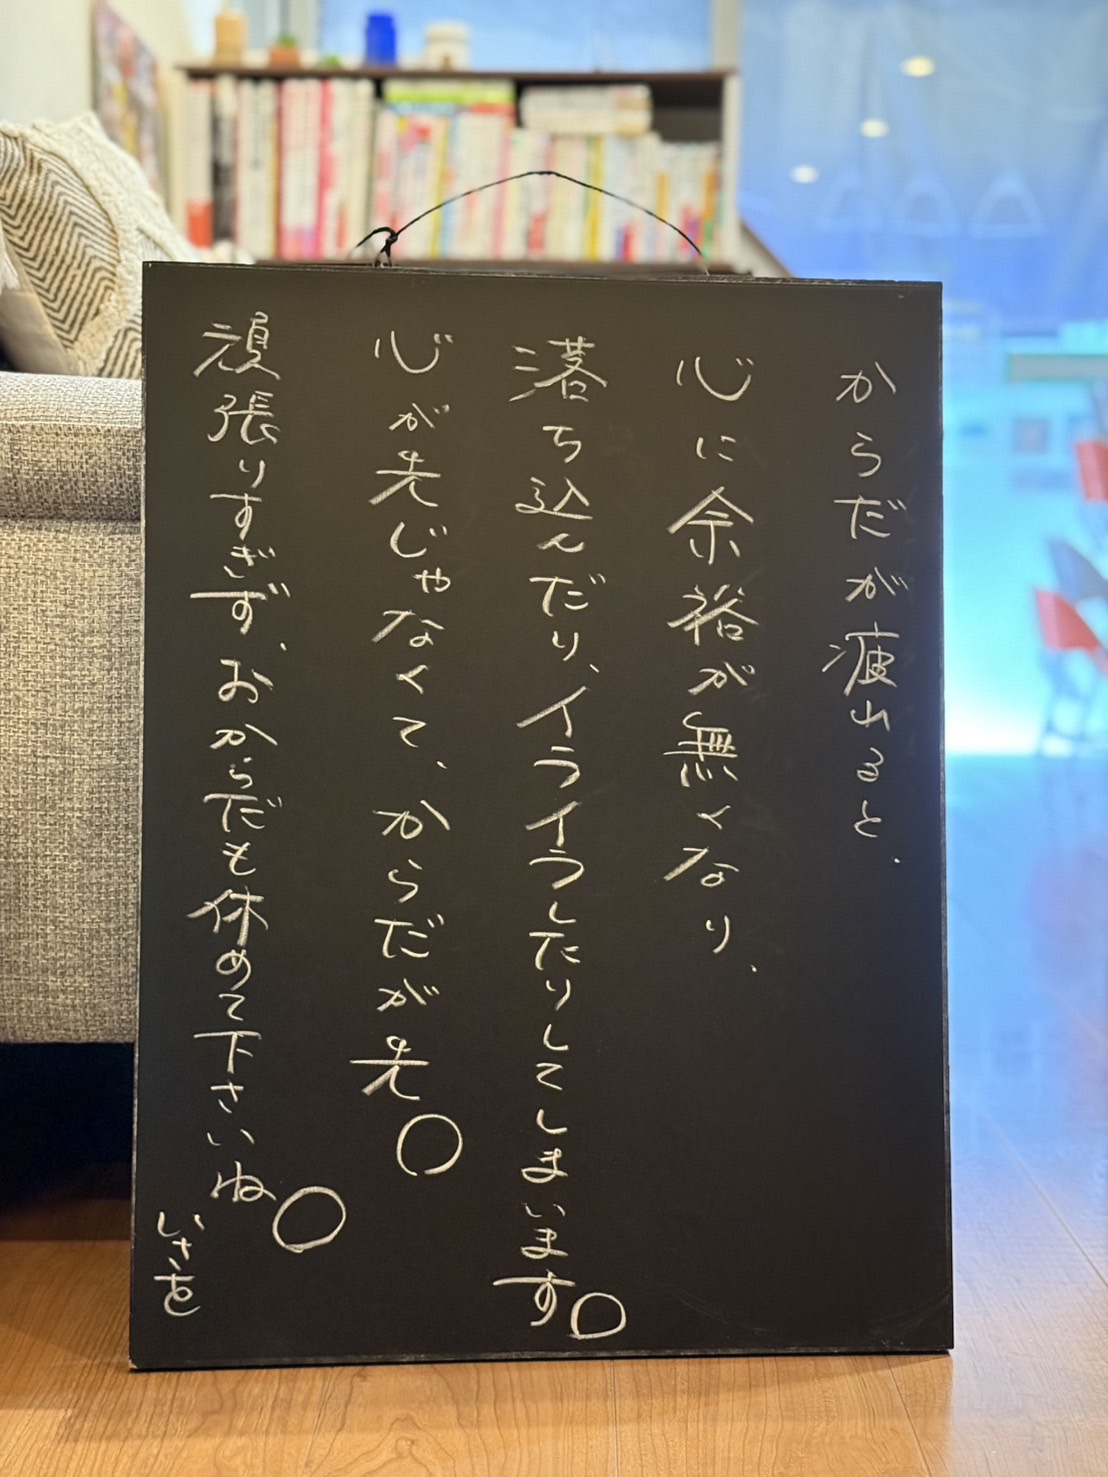 からだが疲れると、
心に余裕が無くなり、
落ち込んだり、イライラしたりしてしまいます。
心が先じゃなくて、からだが先。
頑張りすぎず、おからだも休めて下さいね。
いさを